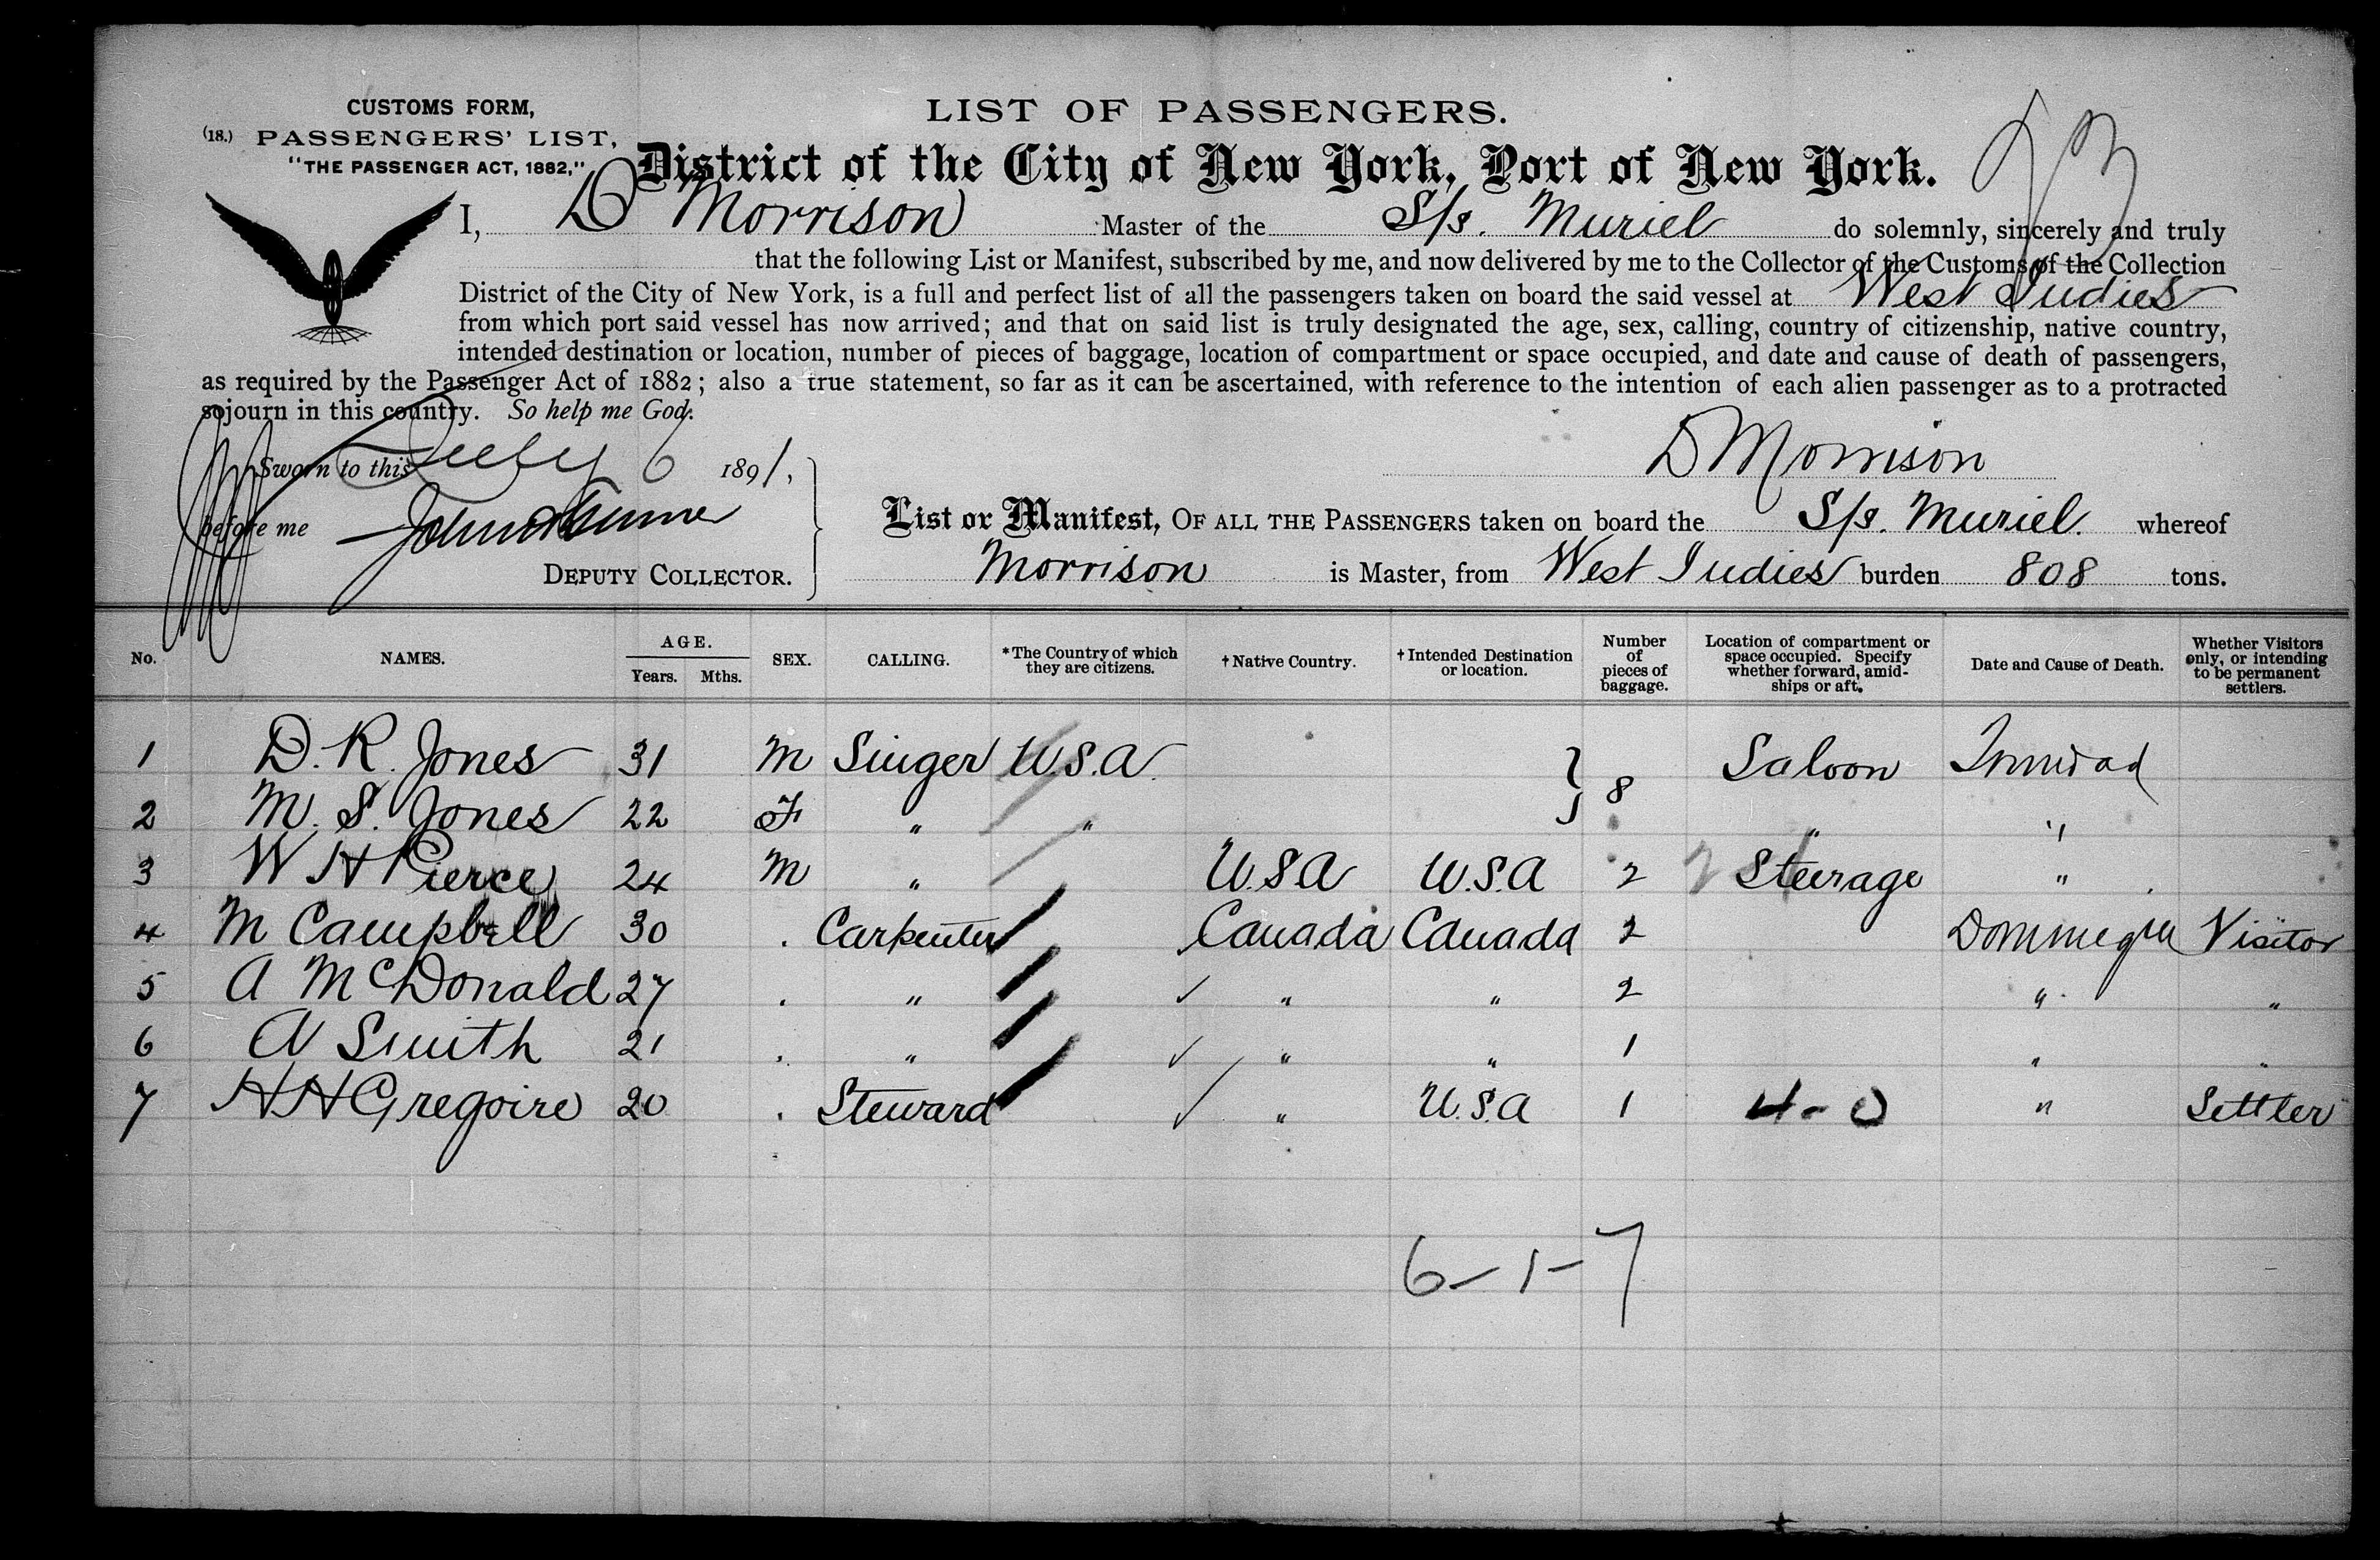 CUSTOMS FORM,
(18.) PASSENGERS' LIST,
"THE PASSENGER ACT, 1882,"
LIST OF PASSENGERS.
District of the City of New York, Port of New York.
I, D Morrison Master of the S/s. Muriel do solemnly, sincerely and truly
that the following List or Manifest, subscribed by me, and now delivered by me to the Collector of the Customs of the Collection
District of the City of New York, is a full and perfect list of all the passengers taken on board the said vessel at West Indies
from which port said vessel has now arrived; and that on said list is truly designated the age, sex, calling, country of citizenship, native country,
intended destination or location, number of pieces of baggage, location of compartment or space occupied, and date and cause of death of passengers,
as required by the Passenger Act of 1882; also a true statement, so far as it can be ascertained, with reference to the intention of each alien passenger as to a protracted
sojourn in this country. So help me God.
Sworn to this July 6 1891,
D Morrison
before me John
DEPUTY COLLECTOR.
List or Manifest, OF ALL THE PASSENGERS taken on board the S/s. Muriel. whereof
Morrison is Master, from West Indies burden 808 tons.
No. NAMES. AGE. Years. Mths. SEX. CALLING. *The Country of which they are citizens. †Native Country. †Intended Destination or location. Number of pieces of baggage. Location of compartment or space occupied. Specify whether forward, amid-ships or aft. Date and Cause of Death. Whether Visitors only, or intending to be permanent settlers.
1 D. R. Jones 31 M Singer U.S.A. } 8 Saloon Trinidad
2 M. S. Jones 22 F " " " "
3 W H Pierce 24 M " U.S.A U.S.A 2 Steerage "
4 M Campbell 30 . Carpenter Canada Canada 2 Dominica Visitor
5 A McDonald 27 . " ✓ " " 2 " "
6 A Smith 21 . " ✓ " " 1 " "
7 H H Gregoire 20 . Steward ✓ " U.S.A 1 4-0 " Settler
6-1-7